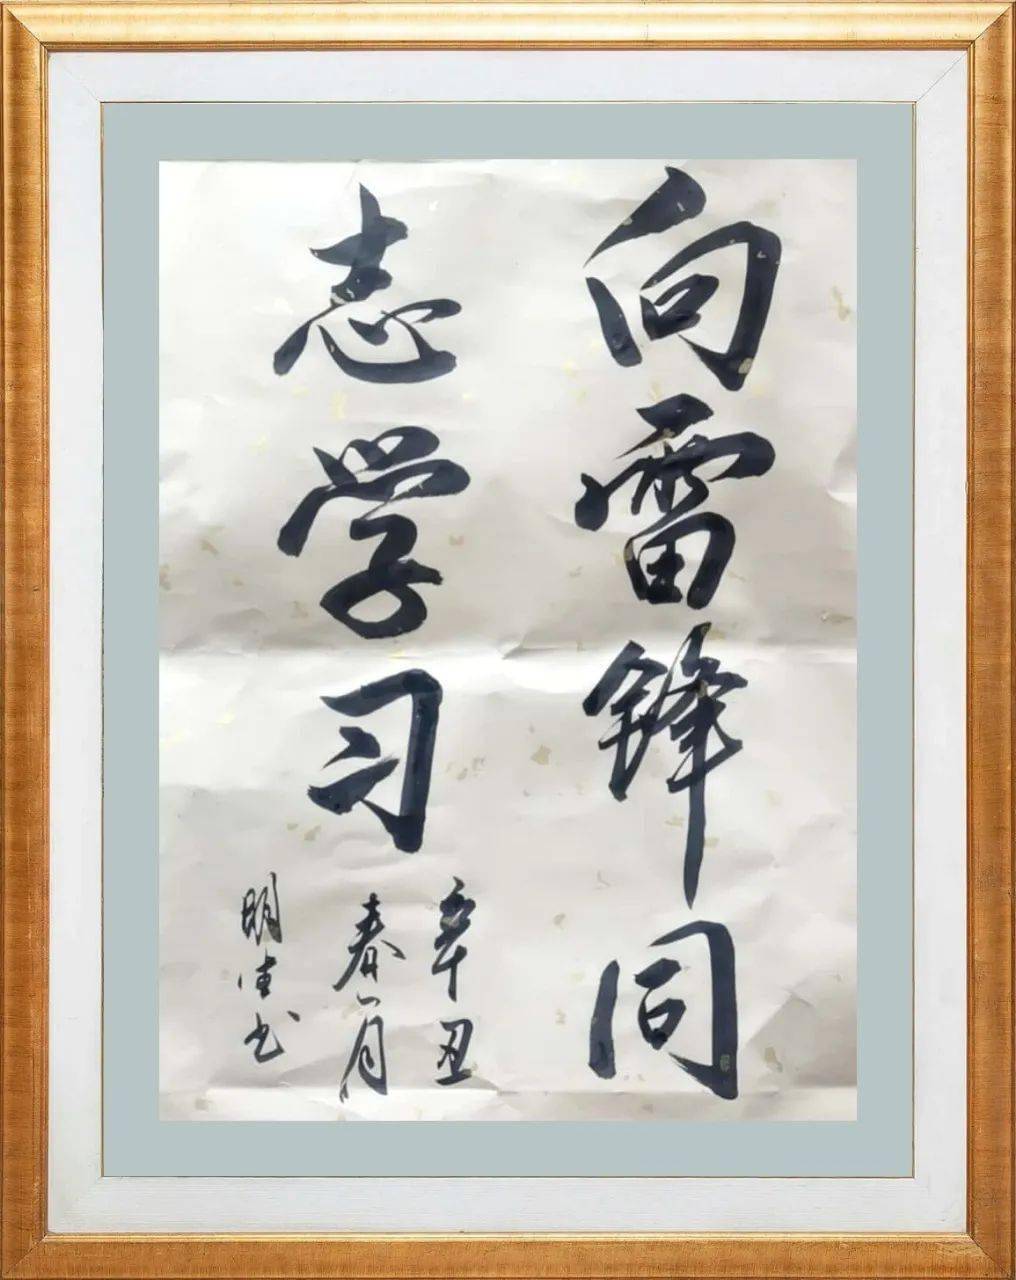 向雷锋同
志学习
辛丑
春月
明書